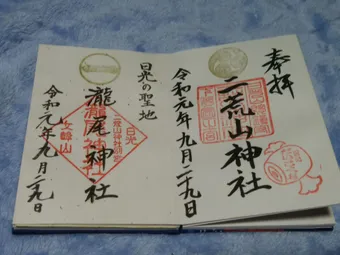 奉拝
二荒山神社
令和元年九月二十九日
日光の聖地
瀧尾神社
日光
女峰山
令和元年九月二九日